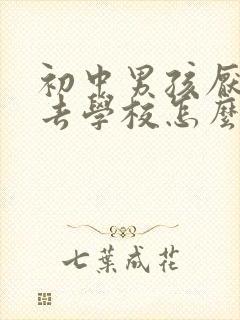 初中男孩厌
去學校怎麽
七葉成花